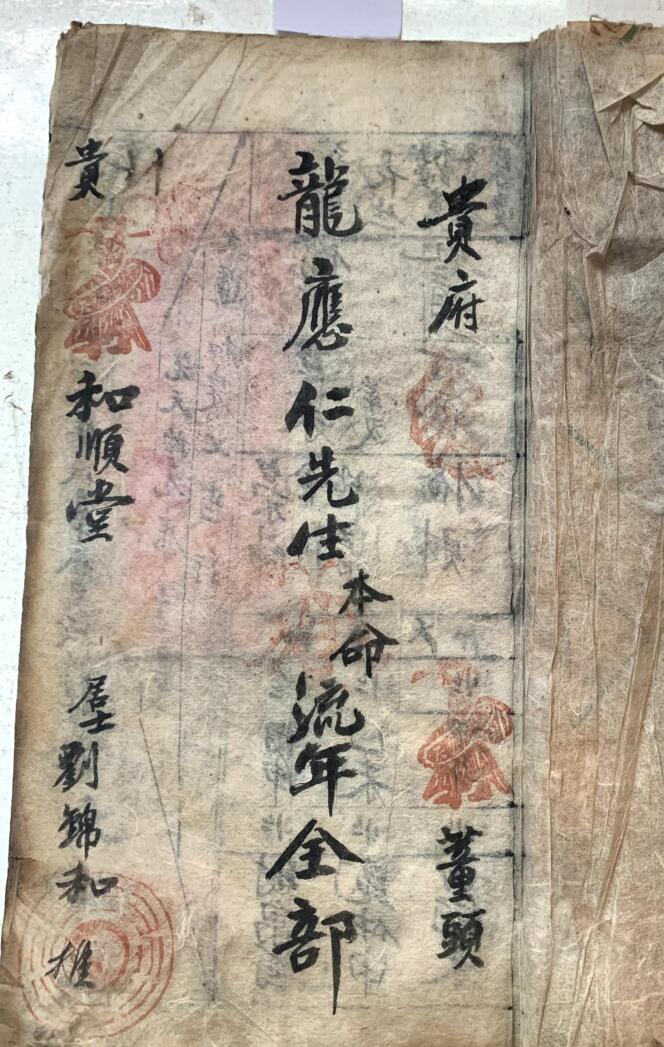 貴府 董頭
龍應仁先生本命流年全部
貴 和順堂 居士劉錦和 推